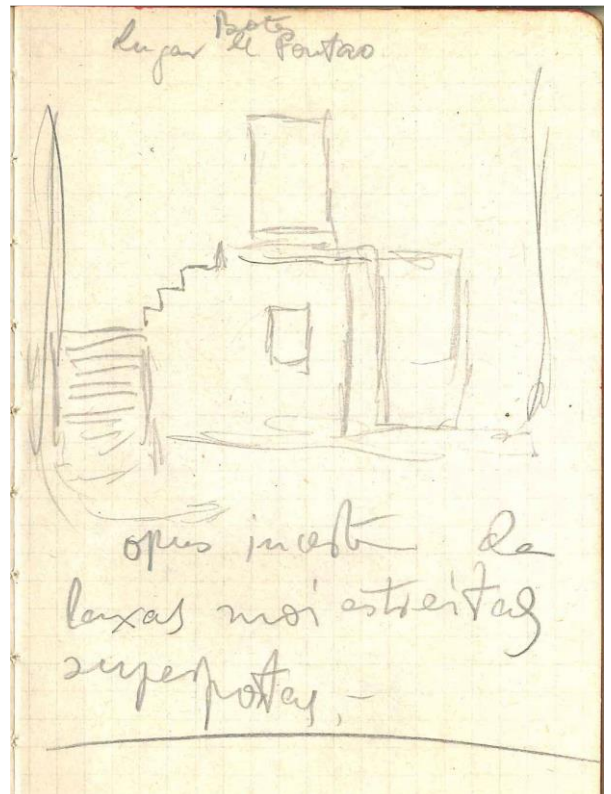 lugar de Pontao
opus incert de
laxas moi estreitas
superpostas.-